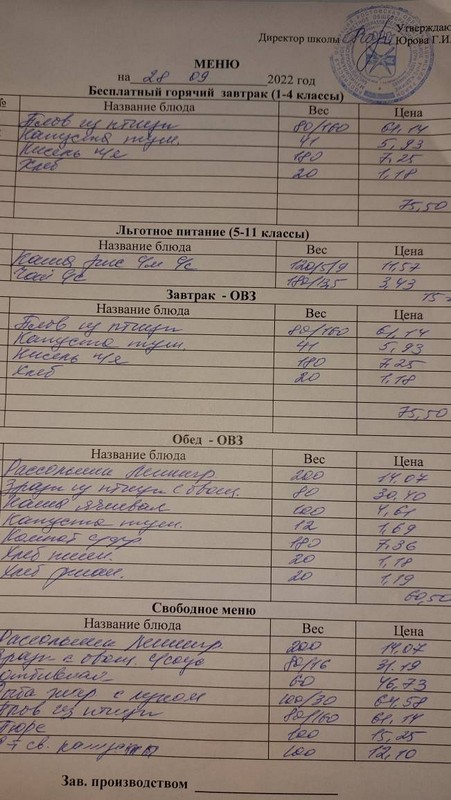 Утверждаю
Директор школы Юрова Г.И.
МЕНЮ
на 28 09 2022 год
Бесплатный горячий завтрак (1-4 классы)
№ Название блюда Вес Цена
Плов из птицы 80/160 61,14
Капуста туш. 41 5,93
Кисель п/я 180 7,25
Хлеб 20 1,18
75,50
Льготное питание (5-11 классы)
Название блюда Вес Цена
Каша рис 120/5/9 11,57
Чай 3,43
Завтрак - ОВЗ
Название блюда Вес Цена
Плов из птицы 80/160 61,14
Капуста туш. 41 5,93
Кисель п/я 180 7,25
Хлеб 20 1,18
75,50
Обед - ОВЗ
Название блюда Вес Цена
Рассольник Ленингр 200 14,07
Зразы из птицы с овощ. 80 30,40
Каша ячневая 100 4,61
Капуста туш. 12 1,69
Компот с/фр 180 7,36
Хлеб пшен. 20 1,18
Хлеб ржан. 20 1,19
60,50
Свободное меню
Название блюда Вес Цена
Рассольник Ленингр. 200 14,07
Зразы с овощ. с/соус 80/16 31,19
60 46,73
Рыба жар с луком 100/30 64,58
Плов из птицы 80/160 61,14
Пюре 100 15,25
св. капусты 100 12,10
Зав. производством